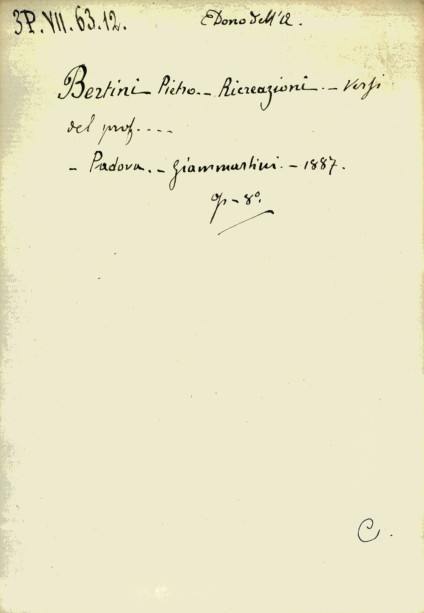 3P.VII.63.12.
Dono dell'A.
Bertini Pietro. - Ricreazioni. - Versi
del prof. ...
- Padova. - Giammartini. - 1887.
8º.
C.